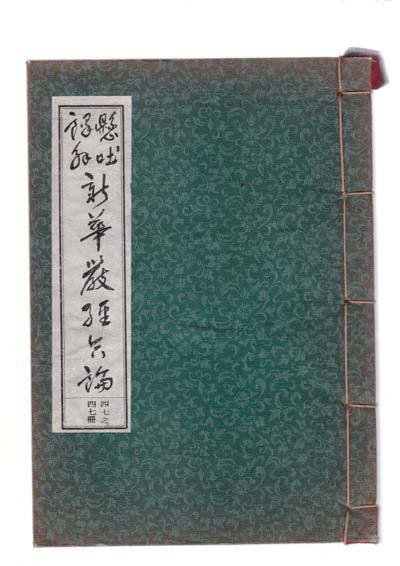 懸吐
譯解
新華嚴經合論
四七之
四七冊